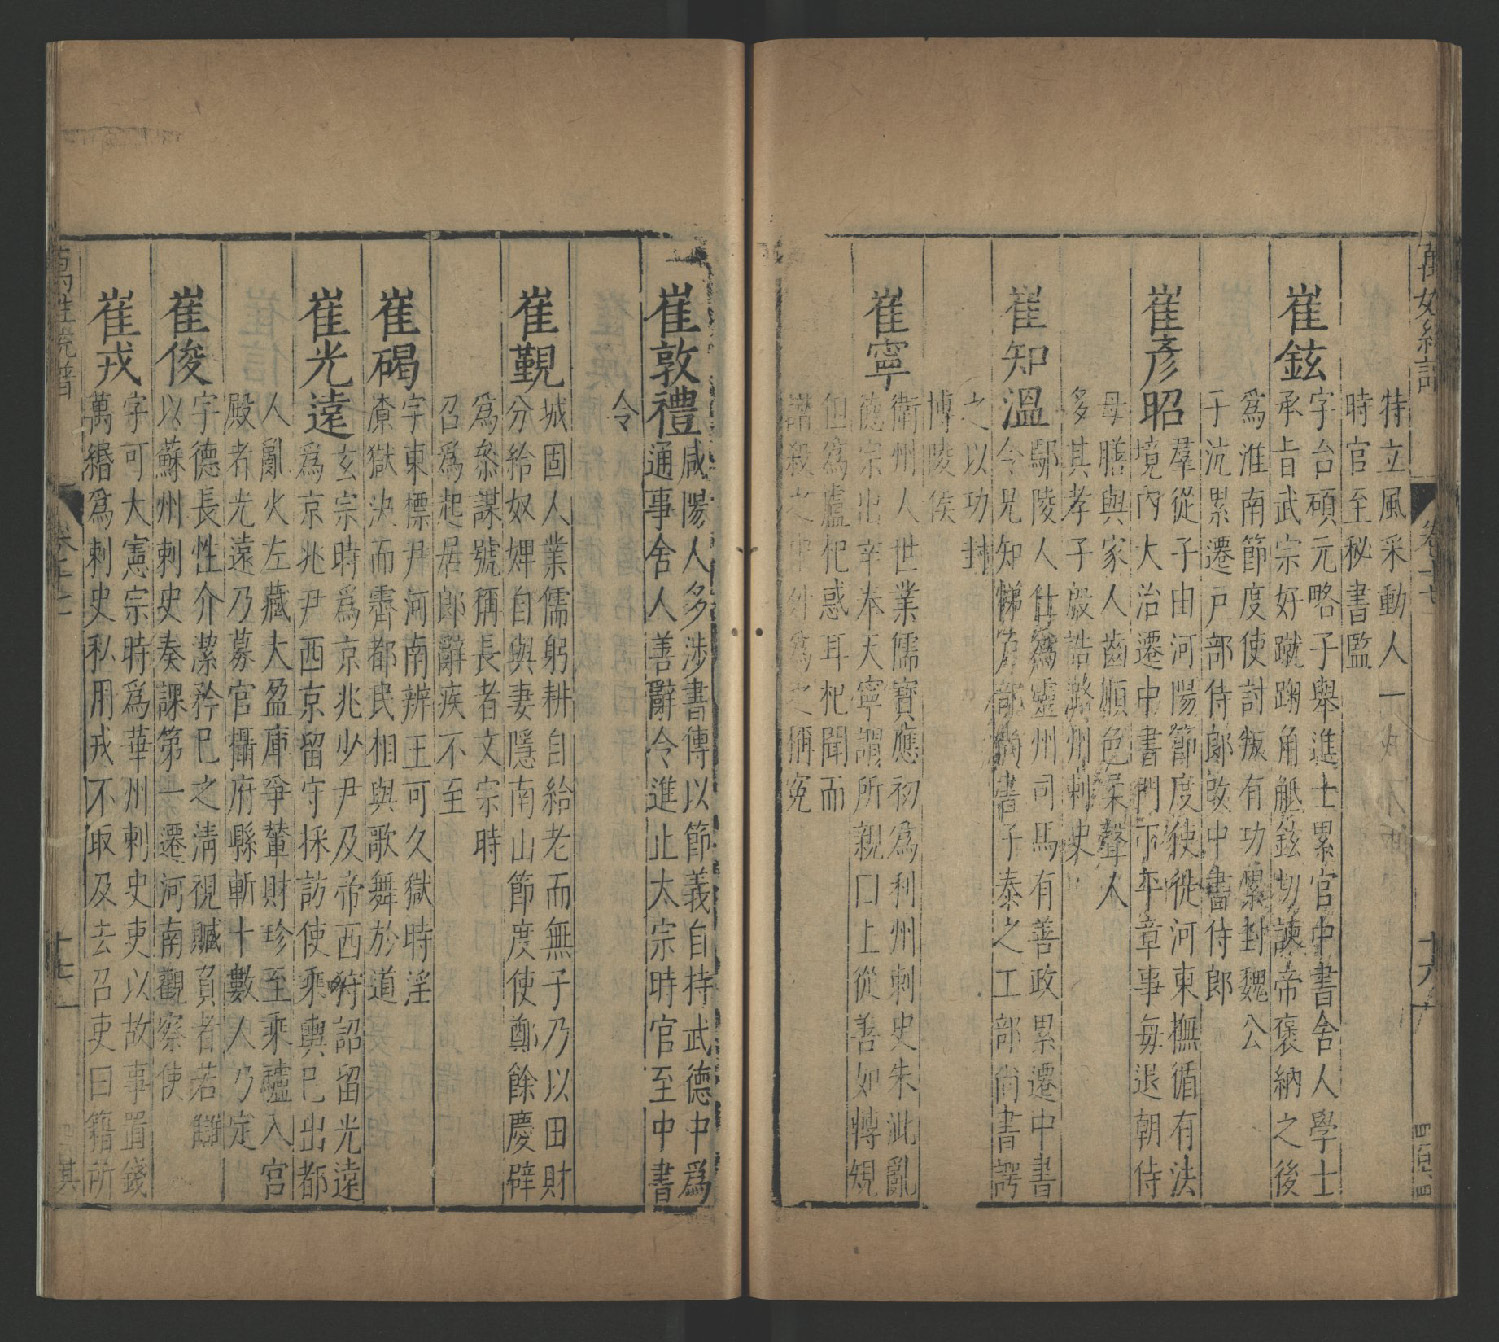 萬姓統譜 卷十七 十六
特立風采動人一
時官至秘書監
崔鉉
字台碩元略子舉進士累官中書舍人學士
承旨武宗好蹴踘角觝鉉切諫帝褒納之後
爲淮南節度使討叛有功累封魏公
子沆累遷戸部侍郎改中書侍郎
崔彥昭
羣從子由河陽節度使徙河東撫循有法
境內大治遷中書門下平章事每退朝侍
母膳與家人齒順色柔聲人
多其孝子設誥潞州刺史
崔知溫
鄢陵人仕爲靈州司馬有善政累遷中書
令兄知悌尚書子泰之工部尚書諤
之以功封
博陵侯
崔寧
衛州人世業儒寶應初爲利州刺史朱泚亂
德宗出幸奉天寧謂所親曰上從善如轉規
但爲盧杞惑耳杞聞而
譖殺之中外爲之稱冤
崔敦禮
咸陽人多涉書傳以節義自持武德中爲
通事舍人善辭令進止太宗時官至中書
令
崔覲
城固人業儒躬耕自給老而無子乃以田財
分給奴婢自與妻隱南山節度使鄭餘慶辟
爲叅謀號稱長者文宗時
召爲起居郎辭疾不至
崔碣
字東標尹河南辨王可久獄時淫
潦獄決而霽都民相與歌舞於道
崔光遠
玄宗時爲京兆少尹及帝西狩詔留光遠
爲京兆尹西京留守採訪使乘輿已出都
人亂火左藏大盈庫爭輦財珍至乘驢入宮
殿者光遠乃募官攝府縣斬十數人乃定
崔俊
字德長性介潔矜已之清視贓負者若讎
以蘇州刺史奏課第一遷河南觀察使
崔戎
字可大憲宗時爲華州刺史吏以故事置錢
萬緡爲刺史私用戎不取及去召吏曰籍所
萬姓統譜 卷十七 十七